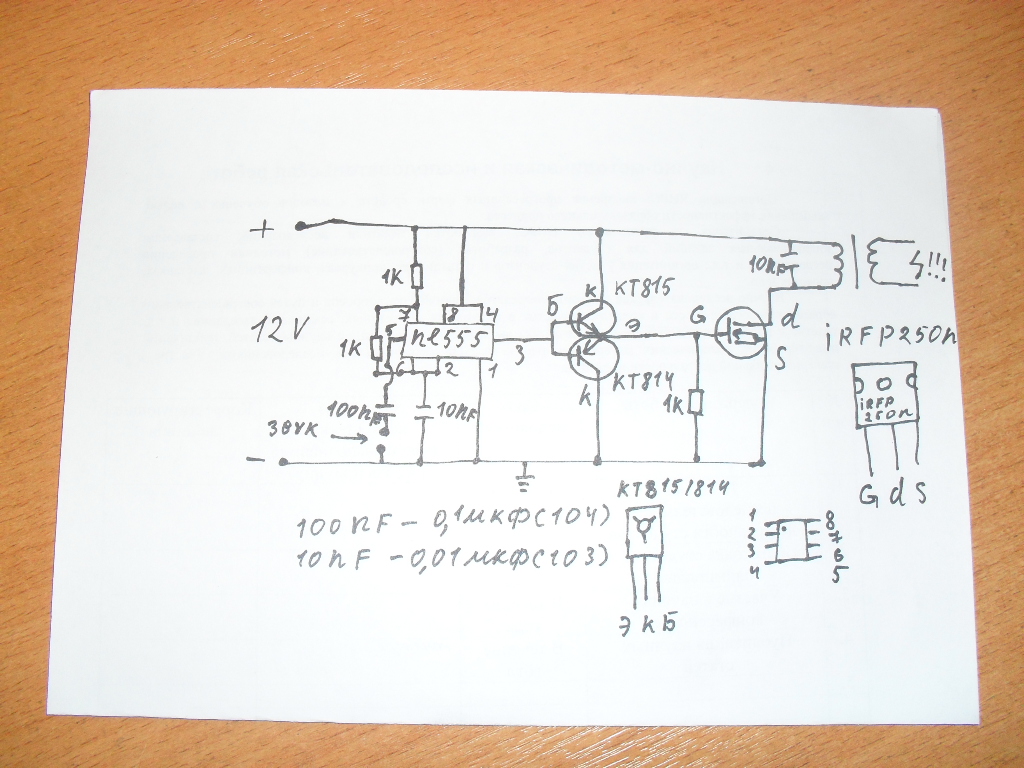 +
1K
12V
7
8
4
5
ne555
1K
6
2
1
3
100nF
10nF
звук
−
К
КТ815
Б
Э
КТ814
К
G
1K
10nF
d
S
!!!
iRFP250n
iRFP
250n
G d S
100nF – 0,1мкФ(104)
10nF – 0,01мкФ(103)
КТ815/814
Э К Б
1
2
3
4
8
7
6
5